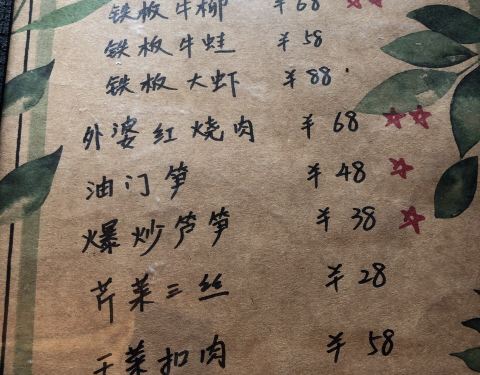 铁板牛柳 ¥68
铁板牛蛙 ¥58
铁板大虾 ¥88
外婆红烧肉 ¥68
油门笋 ¥48
爆炒芦笋 ¥38
芹菜三丝 ¥28
干菜扣肉 ¥58